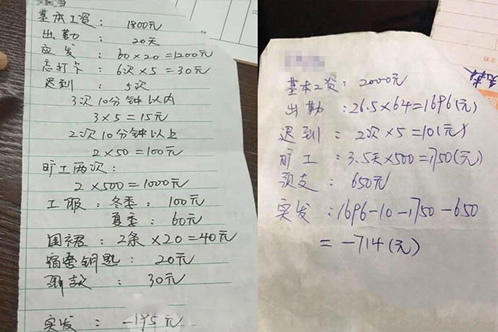 基本工资：1800元
出勤：20天
应发：60×20=1200元
忘打卡：6次×5=30元
迟到：5次
3次10分钟以内
3×5=15元
2次10分钟以上
2×50=100元
旷工两次：
2×500=1000元
工服：冬季：100元
夏季：60元
围裙：2条×20=40元
宿舍钥匙：20元
30元
实发：-195元
基本工资：2000元
出勤：26.5×64=1696(元)
迟到：2次×5=10(元)
旷工：3.5天×500=1750(元)
预支：650元
实发：1696-10-1750-650
=-714(元)